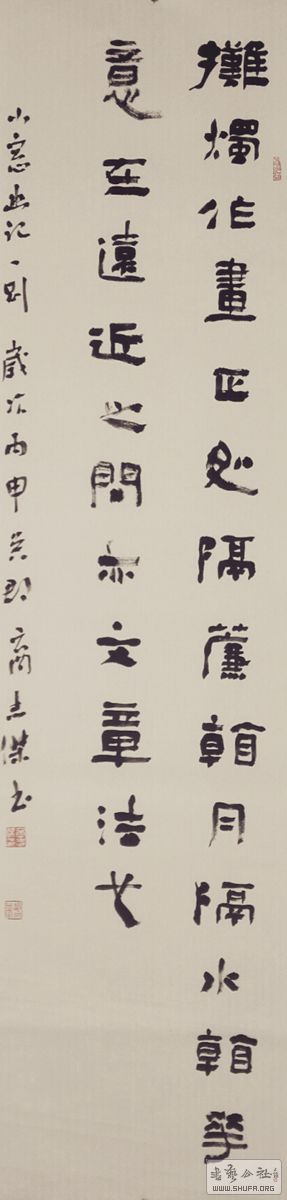 攤燭作畫正如隔簾看月隔水看花
意在遠近之間亦文章法也
小窓幽記一則 歲次丙申吳郡商志傑書
書藝公社
WWW.SHUFA.ORG